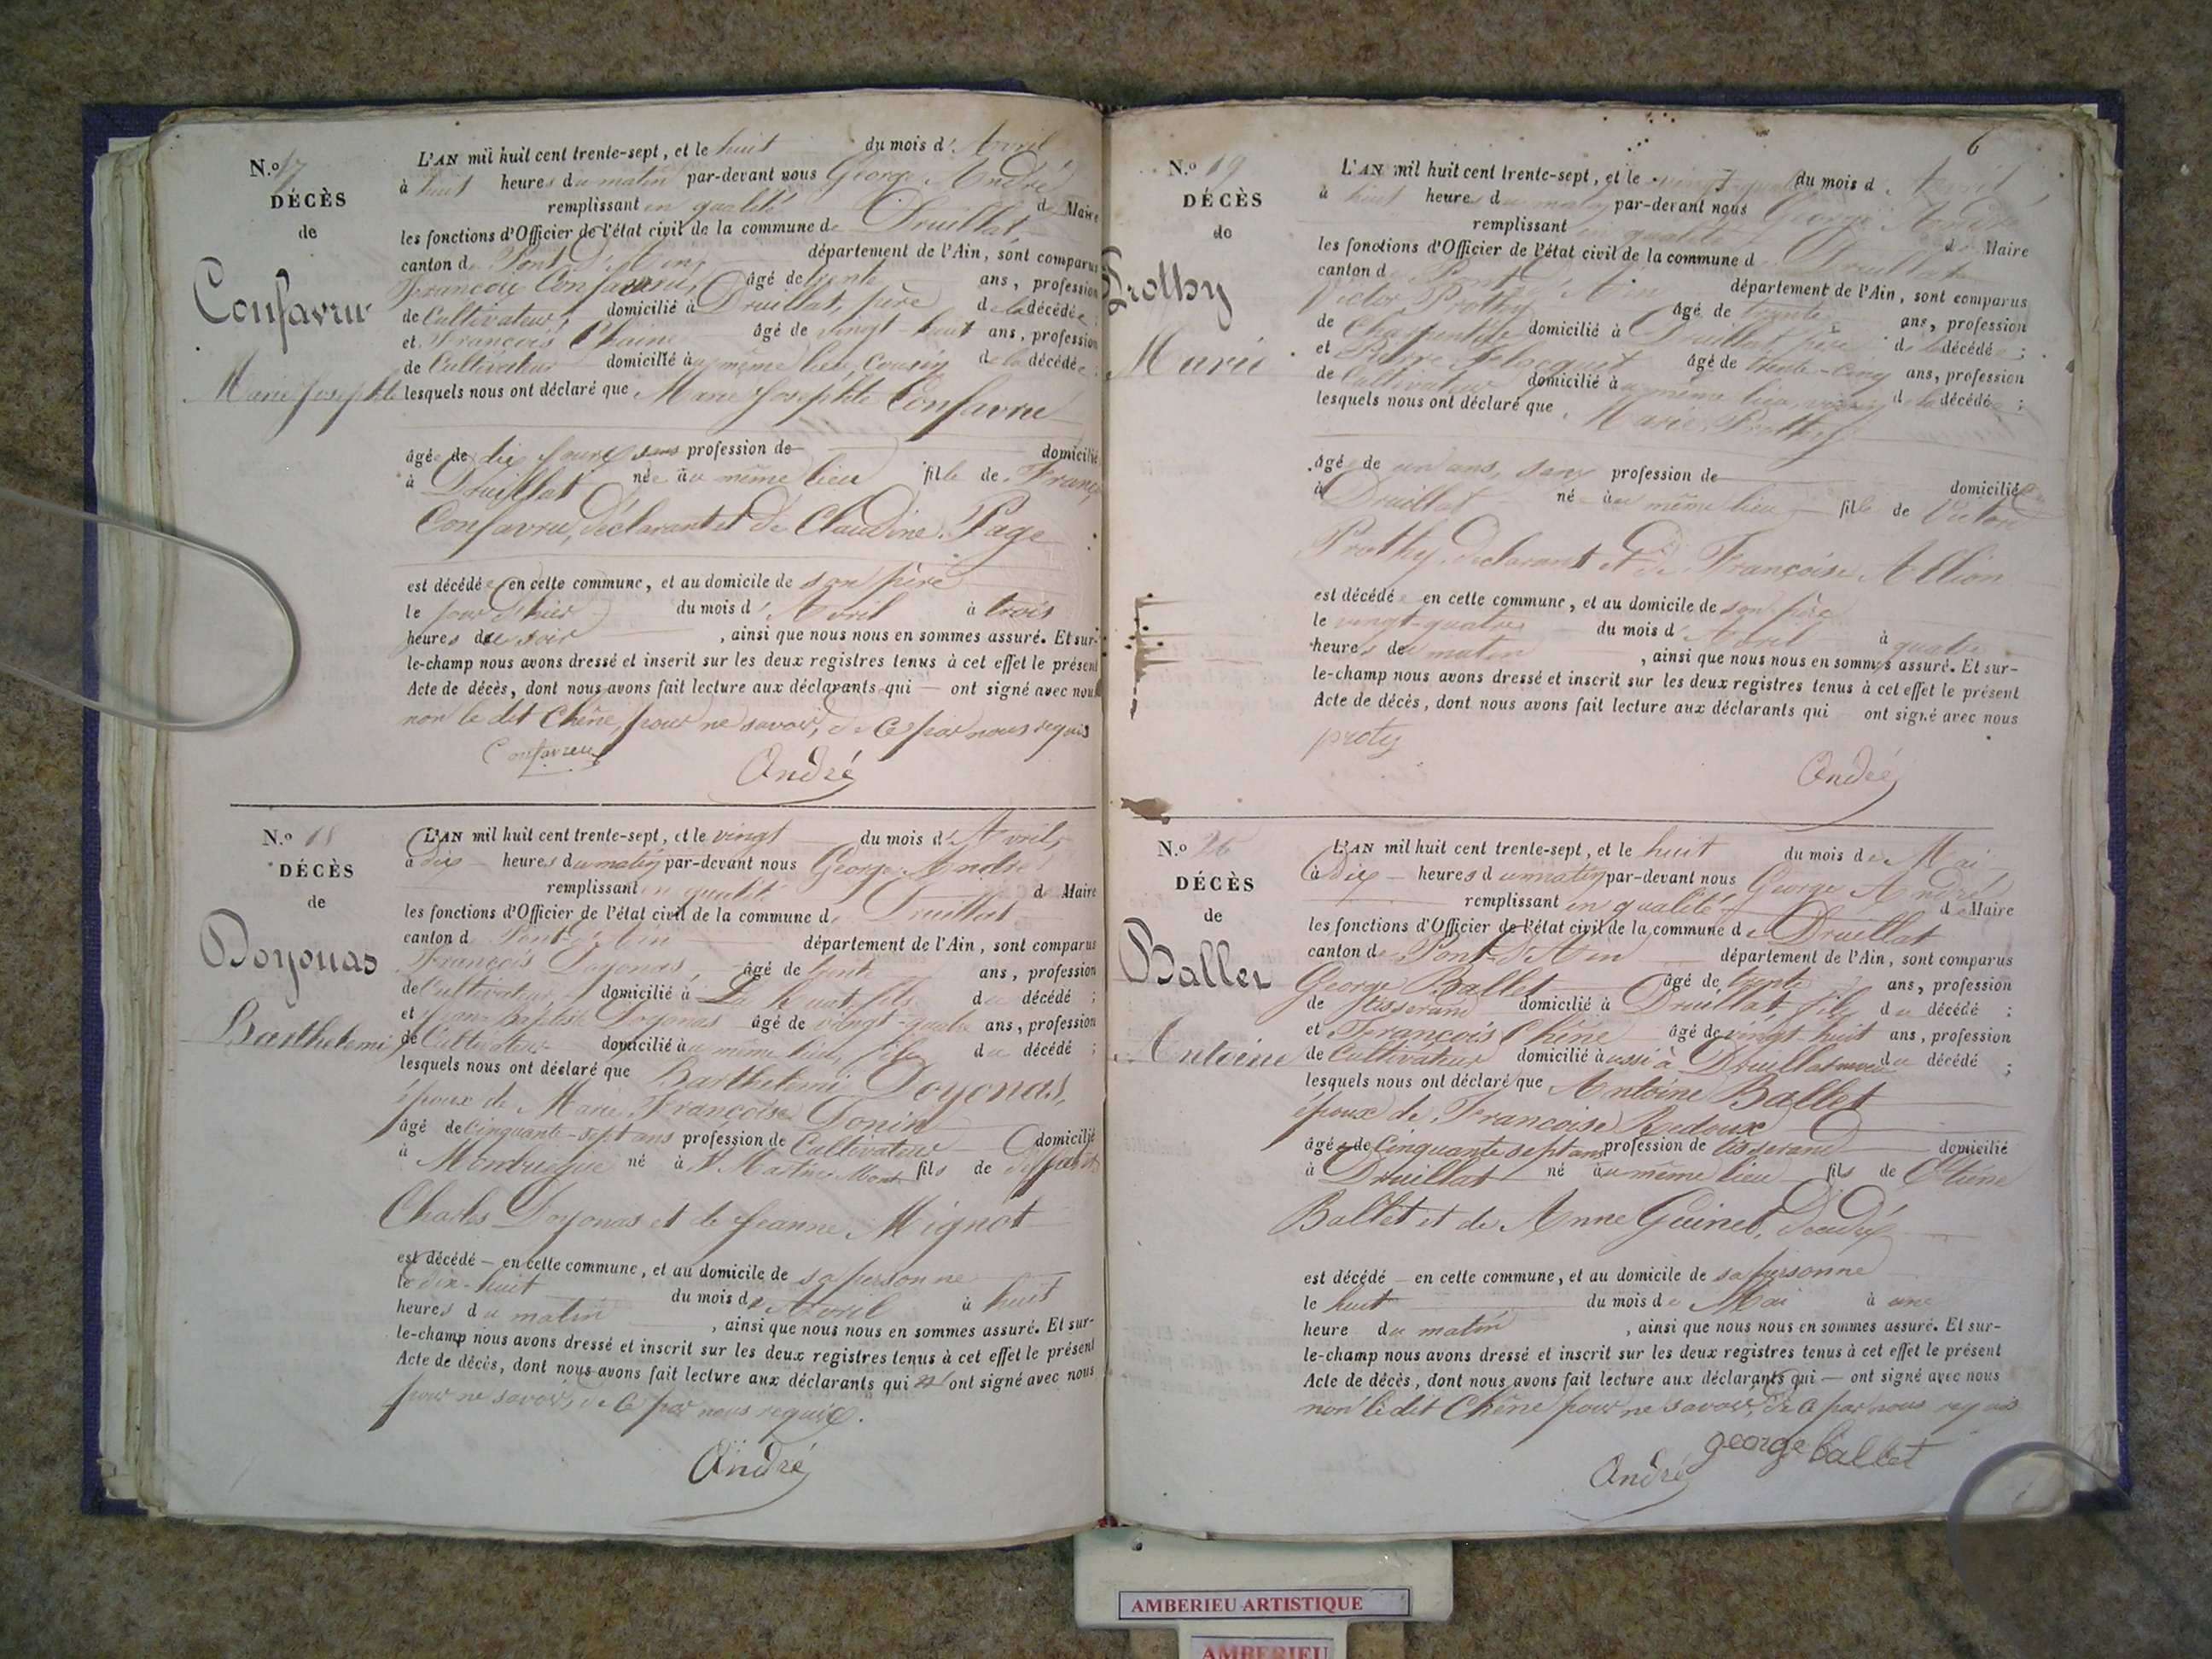 N.o 17
DÉCÈS
de
Confavru
Marie Josephte
L'AN mil huit cent trente-sept, et le huit du mois d'Avril
à huit heures du matin par-devant nous George André
remplissant en qualité de Maire
les fonctions d'Officier de l'état civil de la commune de Druillat
canton de Pont d'Ain département de l'Ain, sont comparus
François Confavru, âgé de trente ans, profession
de Cultivateur, domicilié à Druillat, père de la décédée,
et François Chaine âgé de vingt-huit ans, profession
de Cultivateur domicilié au même lieu, cousin de la décédée,
lesquels nous ont déclaré que Marie Josephte Confavru
âgée de dix jours sans profession de domicilié
à Druillat née au même lieu fille de François
Confavru, déclarant et de Claudine Page
est décédée en cette commune, et au domicile de son père
le jour d'hier du mois d'Avril à trois
heures du soir, ainsi que nous nous en sommes assuré. Et sur-
le-champ nous avons dressé et inscrit sur les deux registres tenus à cet effet le présent
Acte de décès, dont nous avons fait lecture aux déclarants qui — ont signé avec nous
non le dit Chêne, pour ne savoir, de ce par nous requis
Confavreu
André
N.o 18
DÉCÈS
de
Doyonas
Barthelemi
L'AN mil huit cent trente-sept, et le vingt du mois d'Avril,
à dix heures du matin par-devant nous George André
remplissant en qualité de Maire
les fonctions d'Officier de l'état civil de la commune de Druillat
canton de Pont-d'Ain département de l'Ain, sont comparus
François Doyonas, âgé de trente ans, profession
de Cultivateur, domicilié à fils du décédé;
et Jean Baptiste Doyonas âgé de vingt-quatre ans, profession
de Cultivateur domicilié au même lieu, fils du décédé;
lesquels nous ont déclaré que Barthelemi Doyonas,
époux de Marie Françoise Donin
âgé de cinquante-sept ans profession de Cultivateur domicilié
à né à St Martin Mont fils de
Charles Doyonas et de Jeanne Mignot
est décédé — en cette commune, et au domicile de sa personne
le dix-huit du mois d'Avril à huit
heures du matin, ainsi que nous nous en sommes assuré. Et sur-
le-champ nous avons dressé et inscrit sur les deux registres tenus à cet effet le présent
Acte de décès, dont nous avons fait lecture aux déclarants qui ont signé avec nous
pour ne savoir, de ce par nous requis.
André
6
N.o 19
DÉCÈS
de
Prothy
Marie
L'AN mil huit cent trente-sept, et le vingt-quatre du mois d'Avril
à huit heures du matin par-devant nous George André
remplissant en qualité de Maire
les fonctions d'Officier de l'état civil de la commune de Druillat
canton de Pont d'Ain département de l'Ain, sont comparus
Victor Prothy âgé de trente ans, profession
de Charpentier domicilié à Druillat, père de la décédée;
et Pierre âgé de trente-cinq ans, profession
de Cultivateur domicilié au même lieu, voisin de la décédée;
lesquels nous ont déclaré que Marie Prothy
âgée de un ans, sans profession de domicilié
à Druillat né au même lieu fille de Victor
Prothy, déclarant et de Françoise Allion
est décédée en cette commune, et au domicile de son père
le vingt-quatre du mois d'Avril à quatre
heures du matin, ainsi que nous nous en sommes assuré. Et sur-
le-champ nous avons dressé et inscrit sur les deux registres tenus à cet effet le présent
Acte de décès, dont nous avons fait lecture aux déclarants qui ont signé avec nous
proty
André
N.o 20
DÉCÈS
de
Ballet
Antoine
L'AN mil huit cent trente-sept, et le huit du mois de Mai
à dix — heures du matin par-devant nous George André
remplissant en qualité de Maire
les fonctions d'Officier de l'état civil de la commune de Druillat
canton de Pont-d'Ain département de l'Ain, sont comparus
George Ballet âgé de trente ans, profession
de tisserand domicilié à Druillat, fils du décédé:
et François Chêne âgé de vingt-huit ans, profession
de Cultivateur domicilié aussi à Druillat du décédé;
lesquels nous ont déclaré que Antoine Ballet
époux de Françoise Redoux
âgé de cinquante sept ans profession de tisserand domicilié
à Druillat né au même lieu fils de
Ballet et de Anne Guinet, décédés
est décédé — en cette commune, et au domicile de sa personne
le huit du mois de Mai à une
heure du matin, ainsi que nous nous en sommes assuré. Et sur-
le-champ nous avons dressé et inscrit sur les deux registres tenus à cet effet le présent
Acte de décès, dont nous avons fait lecture aux déclarants qui — ont signé avec nous
non le dit Chêne pour ne savoir, de ce par nous requis
george ballet
André
AMBERIEU ARTISTIQUE
AMBERIEU